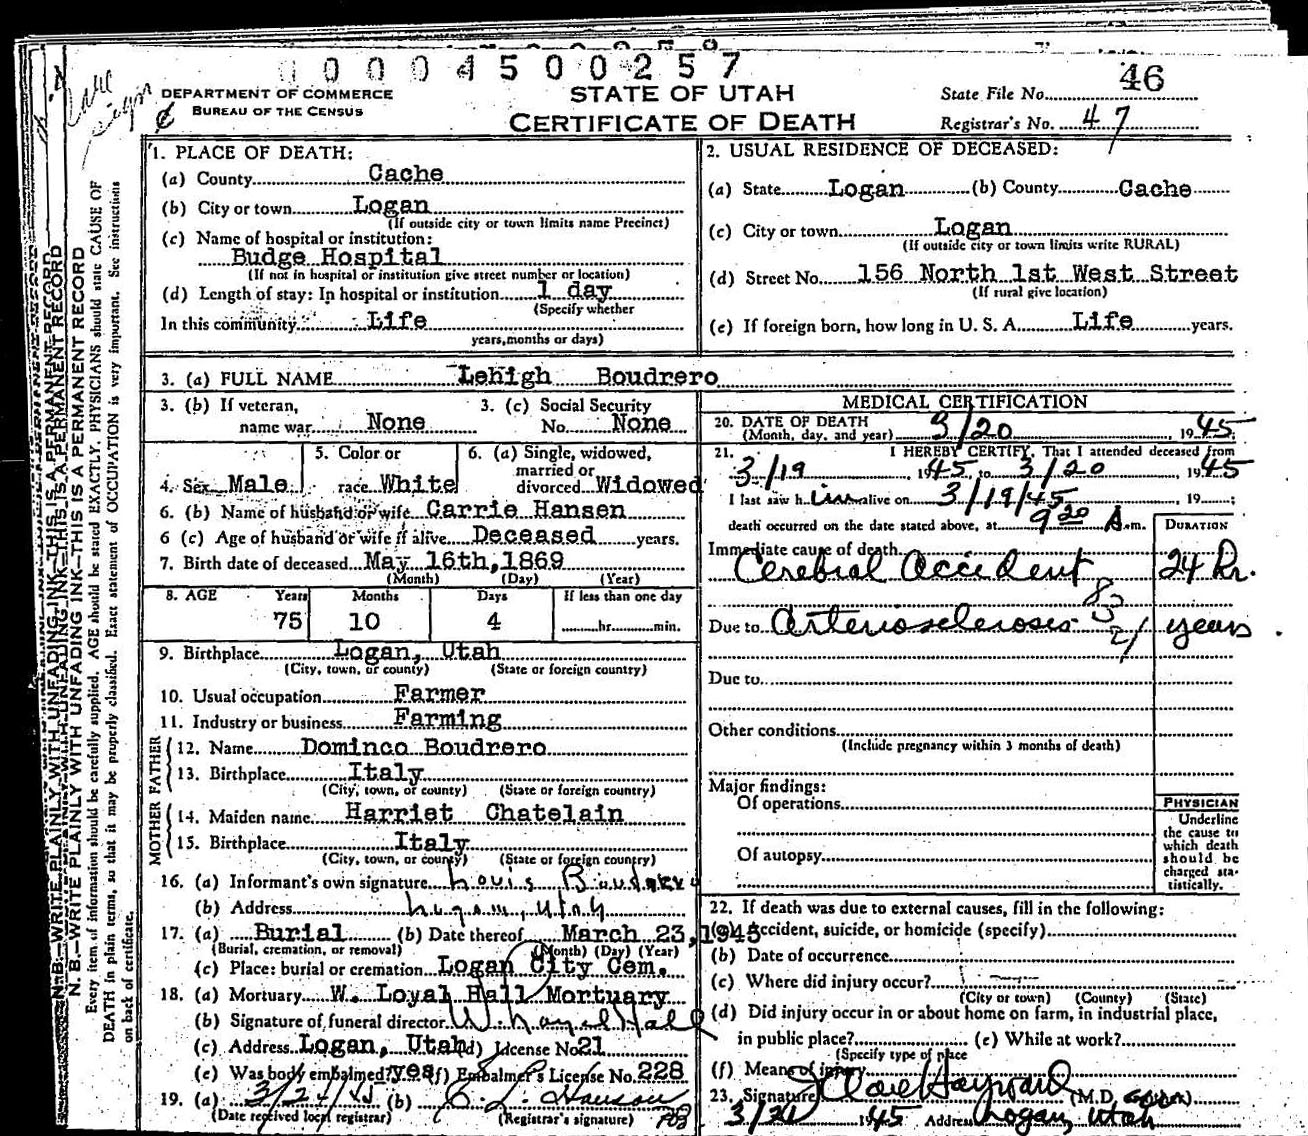 0 0 0 0 4 5 0 0 2 5 7
DEPARTMENT OF COMMERCE
BUREAU OF THE CENSUS
STATE OF UTAH
CERTIFICATE OF DEATH
State File No. 46
Registrar's No. 47
N. B.—WRITE PLAINLY WITH UNFADING INK—THIS IS A PERMANENT RECORD
Every item of information should be carefully supplied. AGE should be stated EXACTLY. PHYSICIANS should state CAUSE OF
DEATH in plain terms, so that it may be properly classified. Exact statement of OCCUPATION is very important. See instructions
on back of certificate.
1. PLACE OF DEATH:
(a) County Cache
(b) City or town Logan
(If outside city or town limits name Precinct)
(c) Name of hospital or institution:
Budge Hospital
(If not in hospital or institution give street number or location)
(d) Length of stay: In hospital or institution 1 day
(Specify whether
In this community Life
years, months or days)
2. USUAL RESIDENCE OF DECEASED:
(a) State Logan (b) County Cache
(c) City or town Logan
(If outside city or town limits write RURAL)
(d) Street No. 156 North 1st West Street
(If rural give location)
(e) If foreign born, how long in U. S. A. Life years.
3. (a) FULL NAME Lehigh Boudrero
3. (b) If veteran, name war None
3. (c) Social Security No. None
4. Sex Male
5. Color or race White
6. (a) Single, widowed, married or divorced Widowed
6. (b) Name of husband or wife Carrie Hansen
6 (c) Age of husband or wife if alive Deceased years.
7. Birth date of deceased May 16th, 1869
(Month) (Day) (Year)
8. AGE Years Months Days If less than one day
75 10 4 hr. min.
9. Birthplace Logan, Utah
(City, town, or county) (State or foreign country)
10. Usual occupation Farmer
11. Industry or business Farming
FATHER
12. Name Dominco Boudrero
13. Birthplace Italy
(City, town, or county) (State or foreign country)
MOTHER
14. Maiden name Harriet Chatelain
15. Birthplace Italy
(City, town, or county) (State or foreign country)
16. (a) Informant's own signature Louis Boudrero
(b) Address Logan, Utah
17. (a) Burial (b) Date thereof March 23, 1945
(Burial, cremation, or removal) (Month) (Day) (Year)
(c) Place: burial or cremation Logan City Cem.
18. (a) Mortuary W. Loyal Hall Mortuary
(b) Signature of funeral director W. Loyal Hall
(c) Address Logan, Utah (d) License No. 21
(e) Was body embalmed? yes (f) Embalmer's License No. 228
19. (a) 3/21/45 (b)
(Date received local registrar) (Registrar's signature)
MEDICAL CERTIFICATION
20. DATE OF DEATH
(Month, day, and year) 3/20, 1945.
21. I HEREBY CERTIFY, That I attended deceased from
3/19 1945 to 3/20, 1945
I last saw him alive on 3/19/45, 19 ;
death occurred on the date stated above, at 9 20 A.m.
DURATION
Immediate cause of death
Cerebral Accident 24 hr.
83
Due to Arteriosclerosis years
21
Due to
Other conditions
(Include pregnancy within 3 months of death)
Major findings:
Of operations
Of autopsy
PHYSICIAN
Underline
the cause to
which death
should be
charged sta-
tistically.
22. If death was due to external causes, fill in the following:
(a) Accident, suicide, or homicide (specify)
(b) Date of occurrence
(c) Where did injury occur?
(City or town) (County) (State)
(d) Did injury occur in or about home on farm, in industrial place,
in public place? (e) While at work?
(Specify type of place
(f) Means of injury
23. Signature J Clare Hayward (M.D.
3/21 1945 Address Logan, Utah